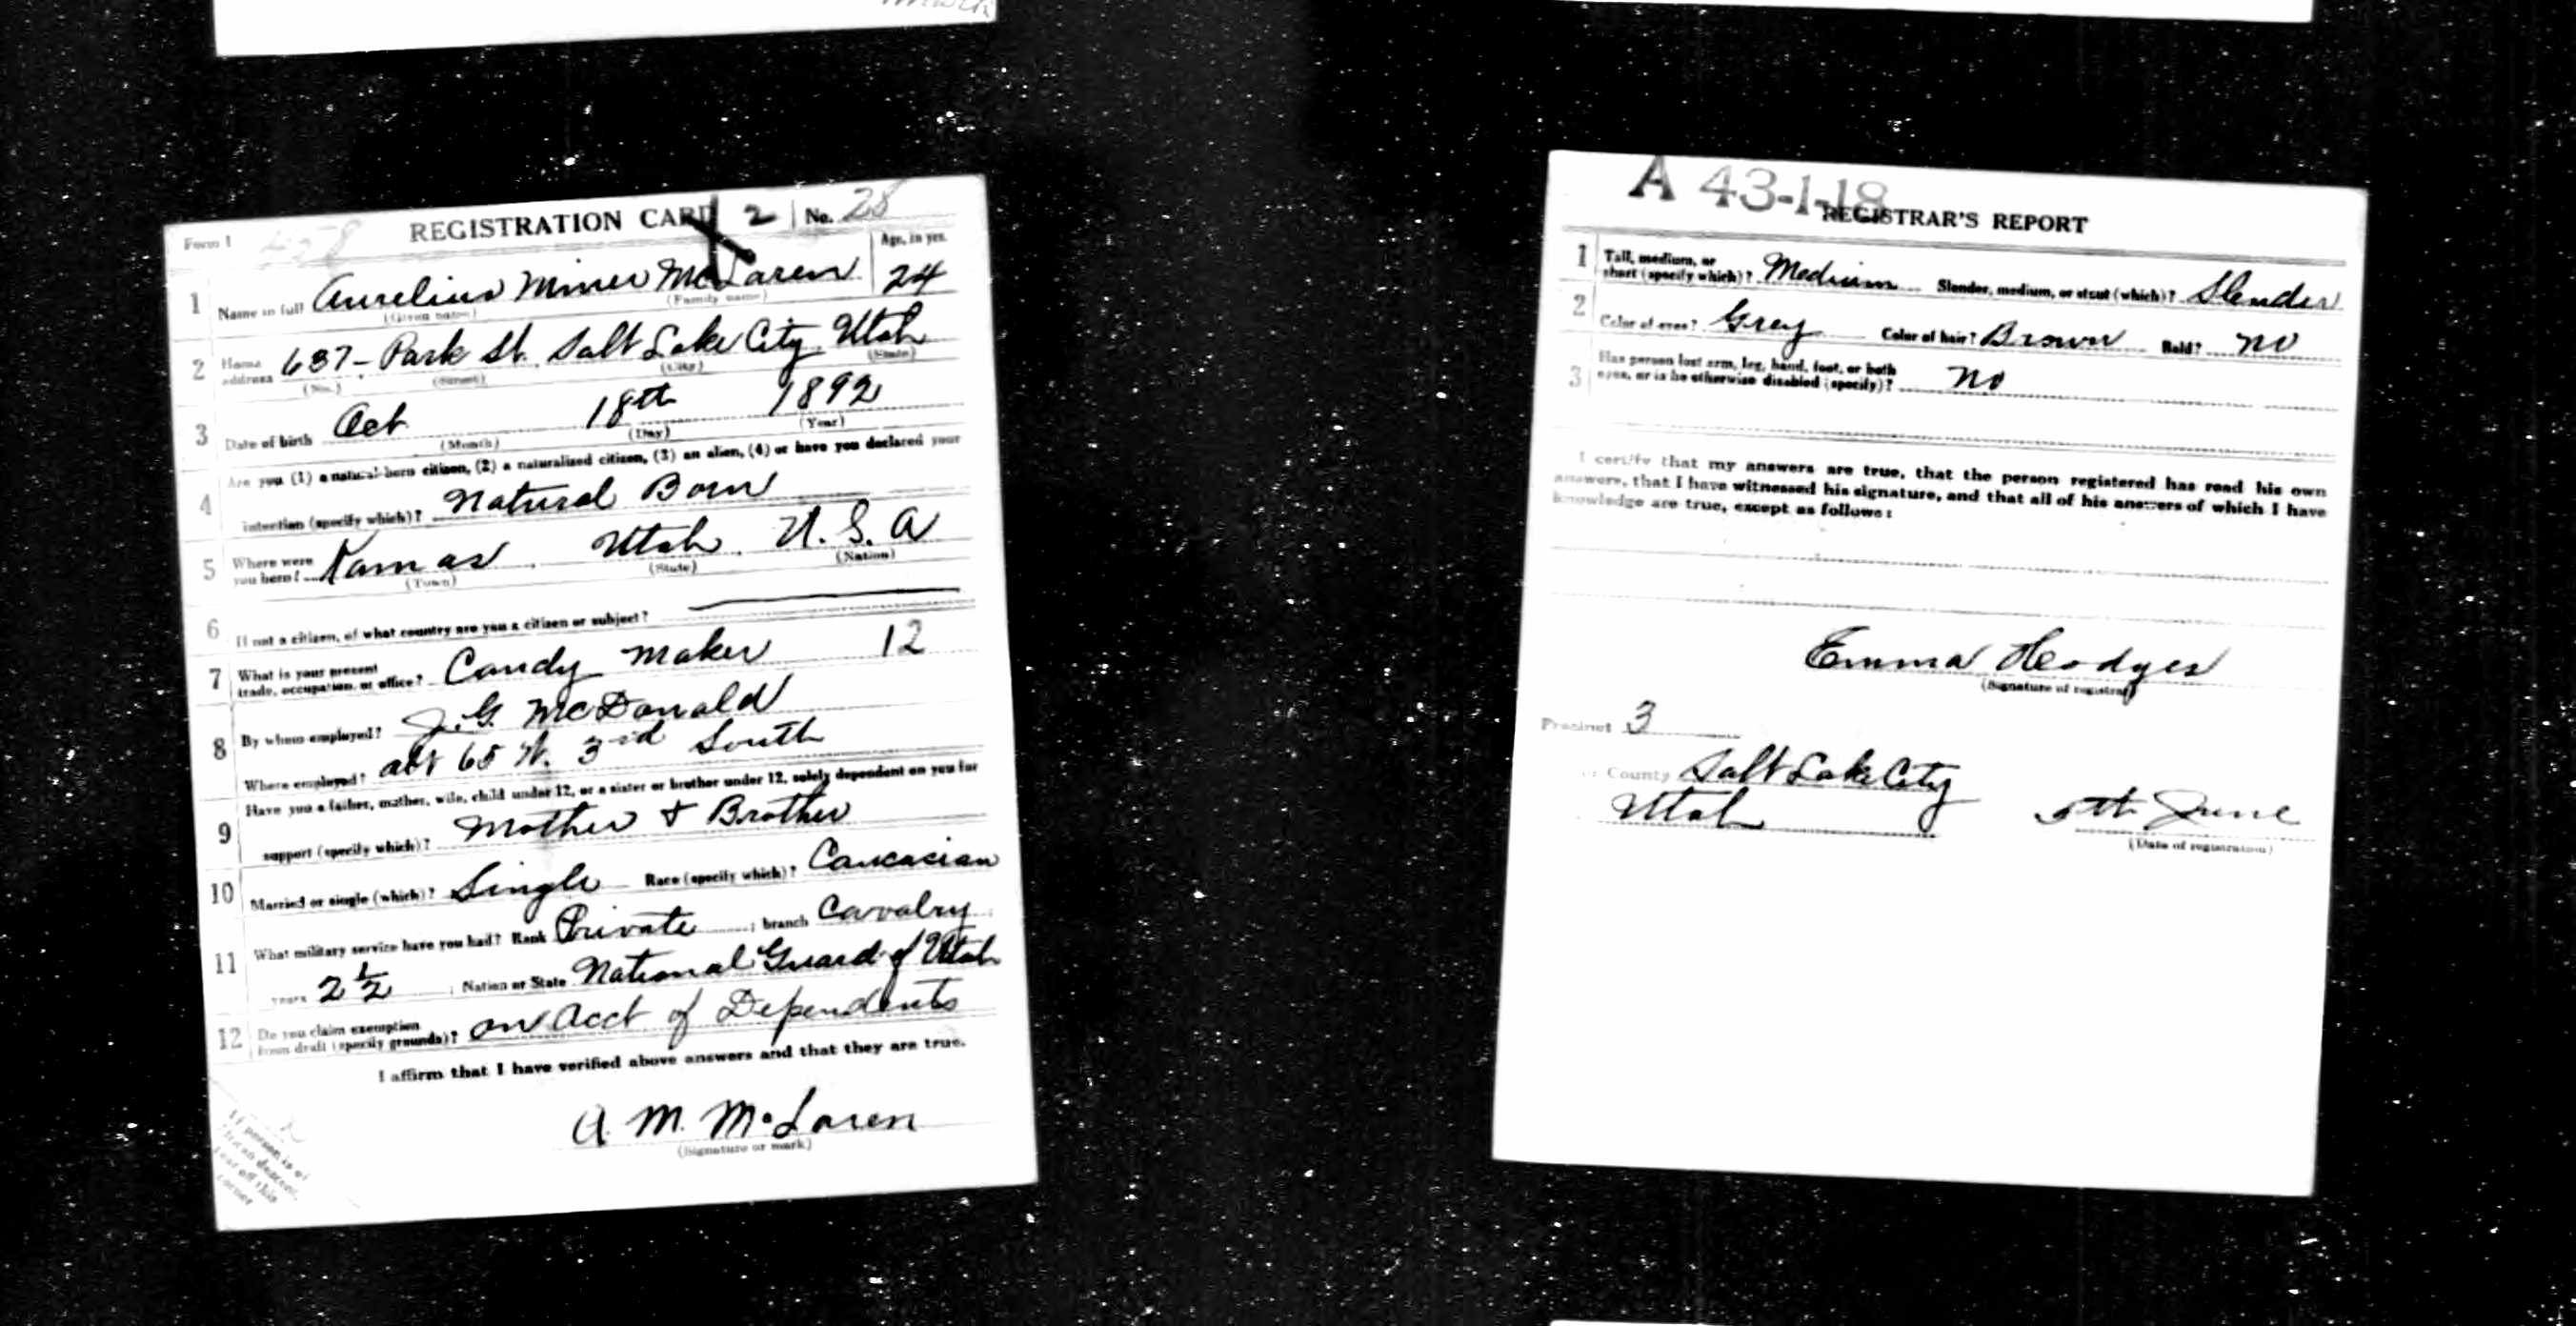 Form 1
REGISTRATION CARD 2 No. 28
Age, in yrs.
1 Name in full Aurelius Miner McLaren 24
(Given name) (Family name)
2 Home address 637 - Park St. Salt Lake City Utah
(No.) (Street) (City) (State)
3 Date of birth Oct 18th 1892
(Month) (Day) (Year)
Are you (1) a natural-born citizen, (2) a naturalized citizen, (3) an alien, (4) or have you declared your
4 intention (specify which)? Natural Born
5 Where were you born? Kamas Utah U.S.A
(Town) (State) (Nation)
6 If not a citizen, of what country are you a citizen or subject?
7 What is your present
trade, occupation, or office? Candy Maker 12
8 By whom employed? J.G. McDonald
Where employed? at 65 W. 3rd South
Have you a father, mother, wife, child under 12, or a sister or brother under 12, solely dependent on you for
9 support (specify which)? Mother & Brother
10 Married or single (which)? Single Race (specify which)? Caucasian
11 What military service have you had? Rank Private ; branch Cavalry
years 2 1/2 ; Nation or State National Guard of Utah
12 Do you claim exemption
from draft (specify grounds)? on acct of Dependents
I affirm that I have verified above answers and that they are true.
A. M. McLaren
(Signature or mark)
If person is of
African descent,
tear off this
corner
A 43-1-18
REGISTRAR'S REPORT
1 Tall, medium, or
short (specify which)? Medium Slender, medium, or stout (which)? Slender
2 Color of eyes? Grey Color of hair? Brown Bald? no
Has person lost arm, leg, hand, foot, or both
3 eyes, or is he otherwise disabled (specify)? no
I certify that my answers are true, that the person registered has read his own
answers, that I have witnessed his signature, and that all of his answers of which I have
knowledge are true, except as follows:
Emma Hodges
(Signature of registrar)
Precinct 3
or County Salt Lake City
Utah 5th June
(Date of registration)